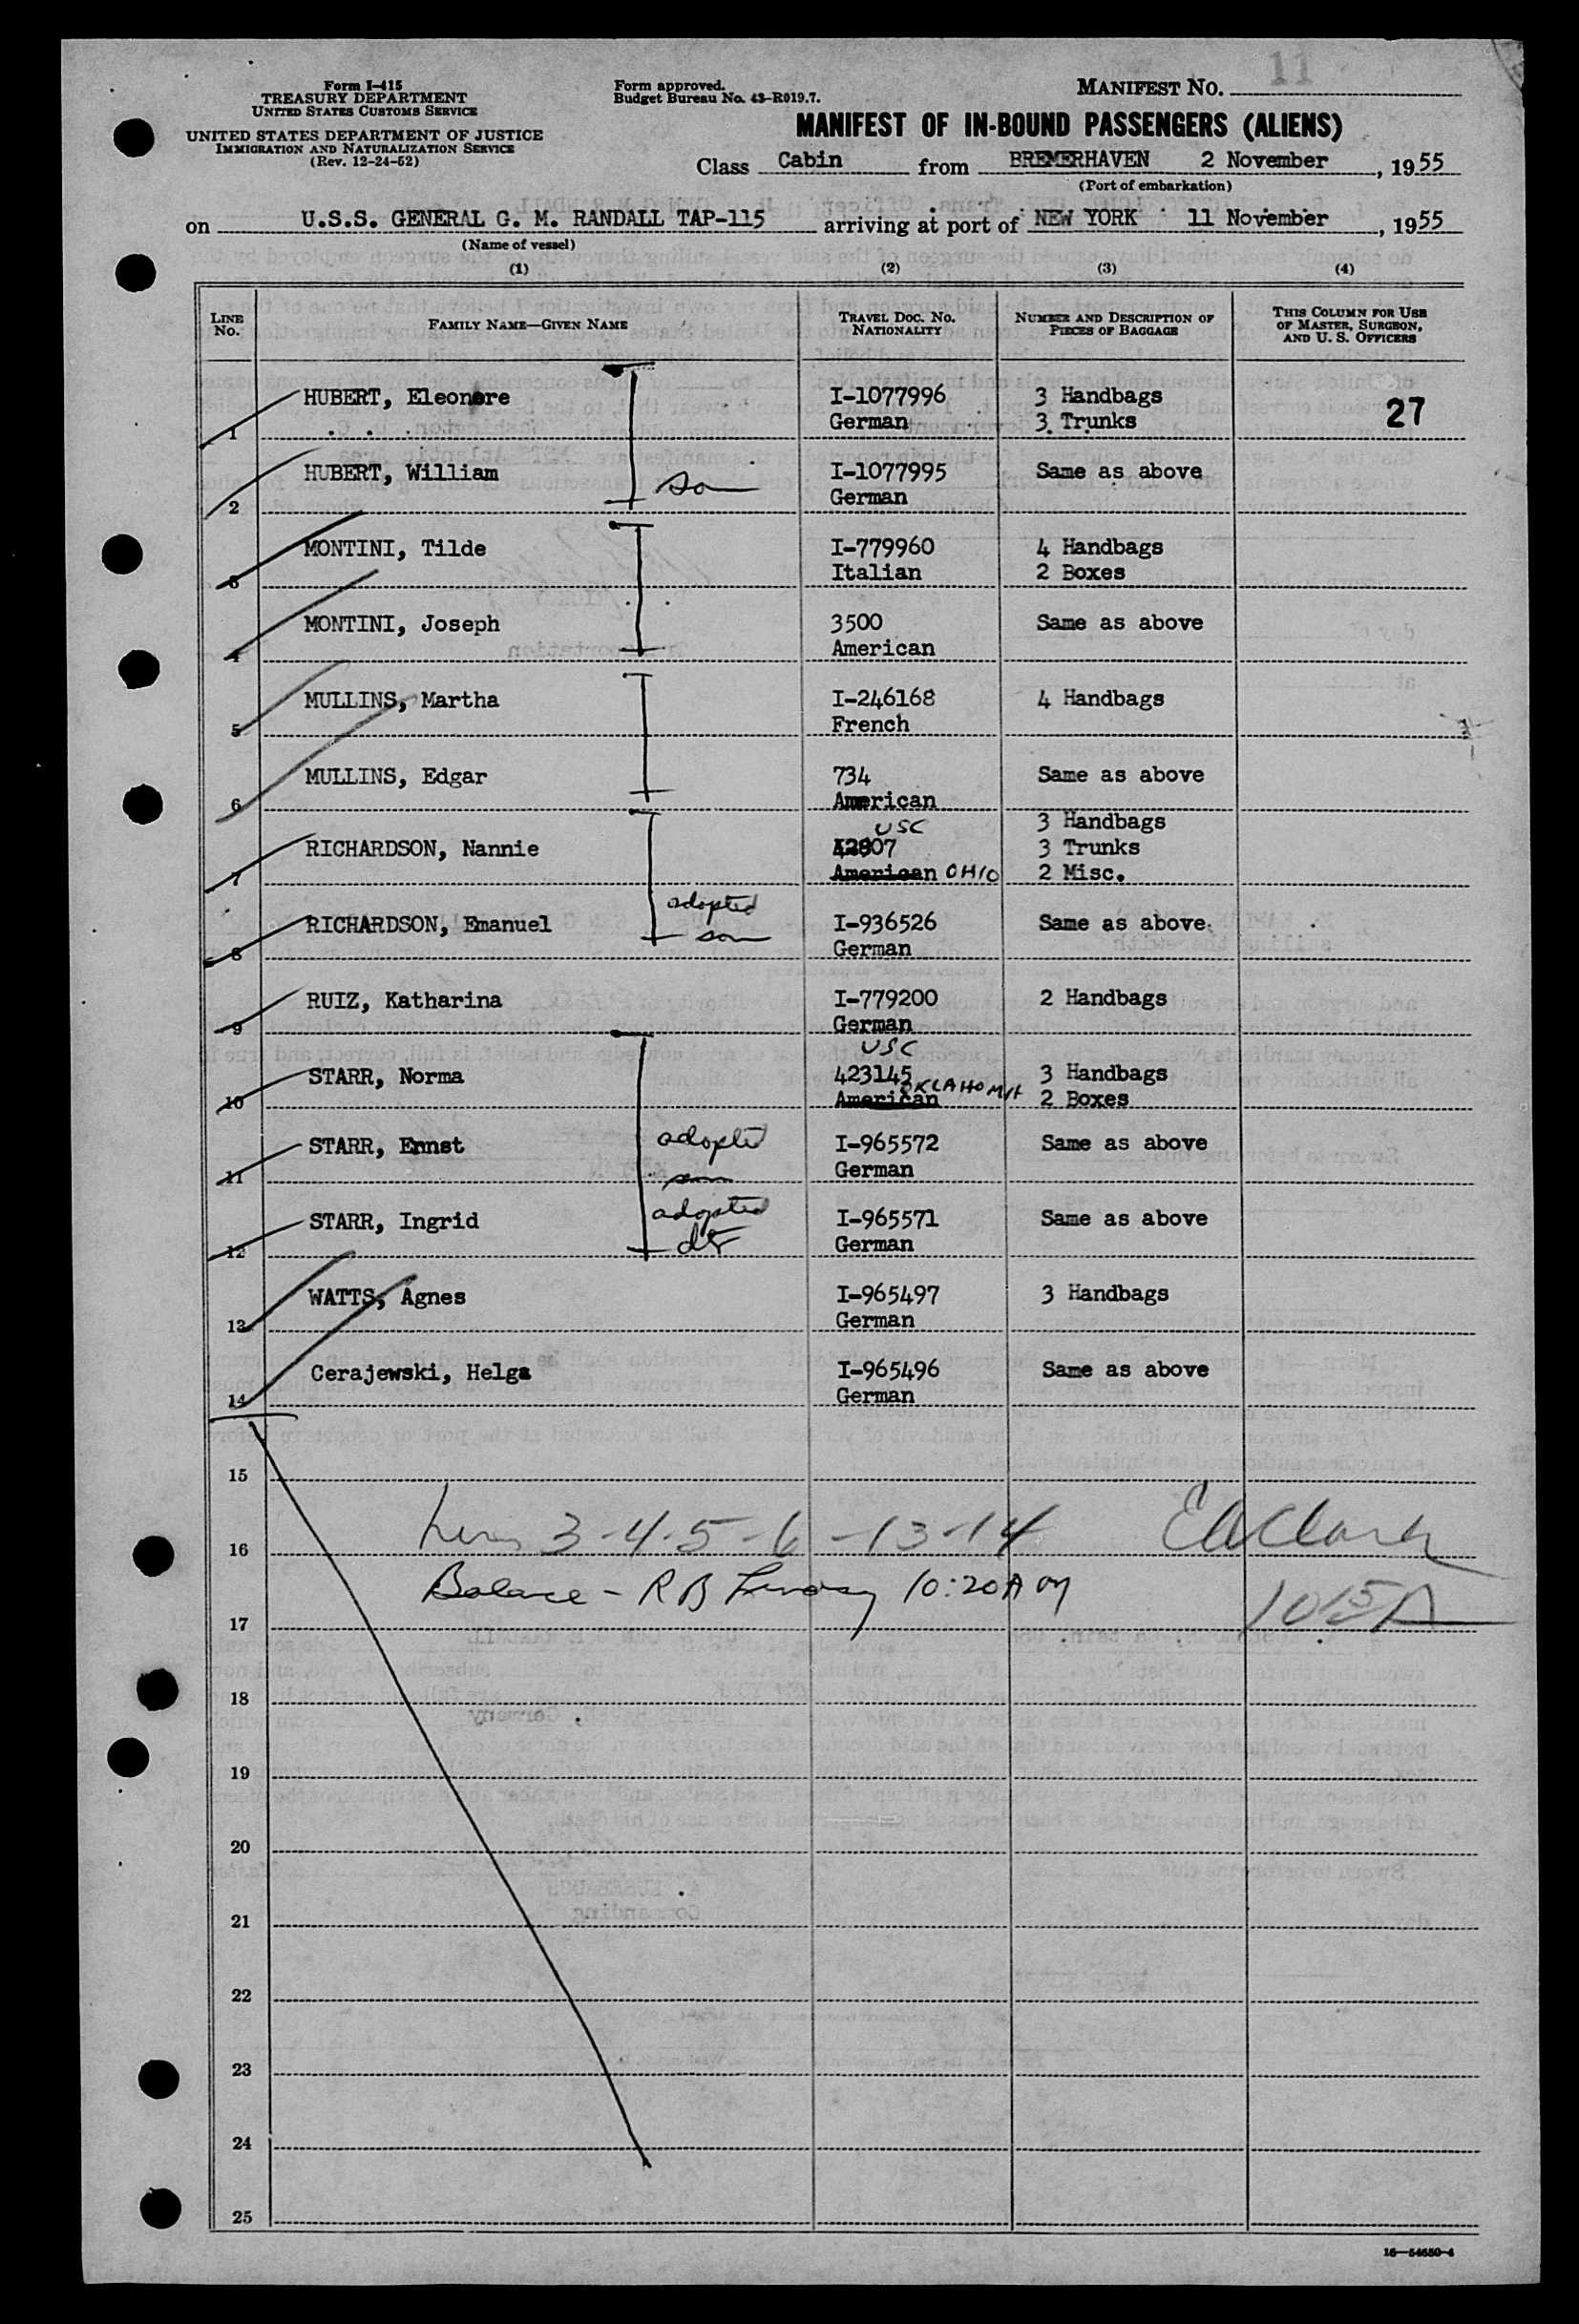 11
Form I-415
TREASURY DEPARTMENT
UNITED STATES CUSTOMS SERVICE
UNITED STATES DEPARTMENT OF JUSTICE
IMMIGRATION AND NATURALIZATION SERVICE
(Rev. 12-24-52)
Form approved.
Budget Bureau No. 43-R019.7.
MANIFEST NO.
MANIFEST OF IN-BOUND PASSENGERS (ALIENS)
Class Cabin from BREMERHAVEN 2 November, 1955
(Port of embarkation)
on U.S.S. GENERAL G. M. RANDALL TAP-115 arriving at port of NEW YORK 11 November, 1955
(Name of vessel)
(1) (2) (3) (4)
LINE No. FAMILY NAME—GIVEN NAME TRAVEL DOC. NO. NATIONALITY NUMBER AND DESCRIPTION OF PIECES OF BAGGAGE THIS COLUMN FOR USE OF MASTER, SURGEON, AND U. S. OFFICERS
HUBERT, Eleonore I-1077996 3 Handbags 27
1 German 3 Trunks
HUBERT, William son I-1077995 Same as above
2 German
MONTINI, Tilde I-779960 4 Handbags
3 Italian 2 Boxes
MONTINI, Joseph 3500 Same as above
4 American
MULLINS, Martha I-246168 4 Handbags
5 French
MULLINS, Edgar 734 Same as above
6 American
USC 3 Handbags
RICHARDSON, Nannie 12807 3 Trunks
7 American OHIO 2 Misc.
RICHARDSON, Emanuel adopted son I-936526 Same as above
8 German
RUIZ, Katharina I-779200 2 Handbags
9 German
USC
STARR, Norma 423145 3 Handbags
10 American OKLAHOMA 2 Boxes
STARR, Ernst adopted son I-965572 Same as above
11 German
STARR, Ingrid adopted dtr I-965571 Same as above
12 German
WATTS, Agnes I-965497 3 Handbags
13 German
Cerajewski, Helga I-965496 Same as above
14 German
15
16 Lines 3-4-5-6-13-14 EA Clark
Balance - R B 10:20 AM 1015A
17
18
19
20
21
22
23
24
25
16—54650-4